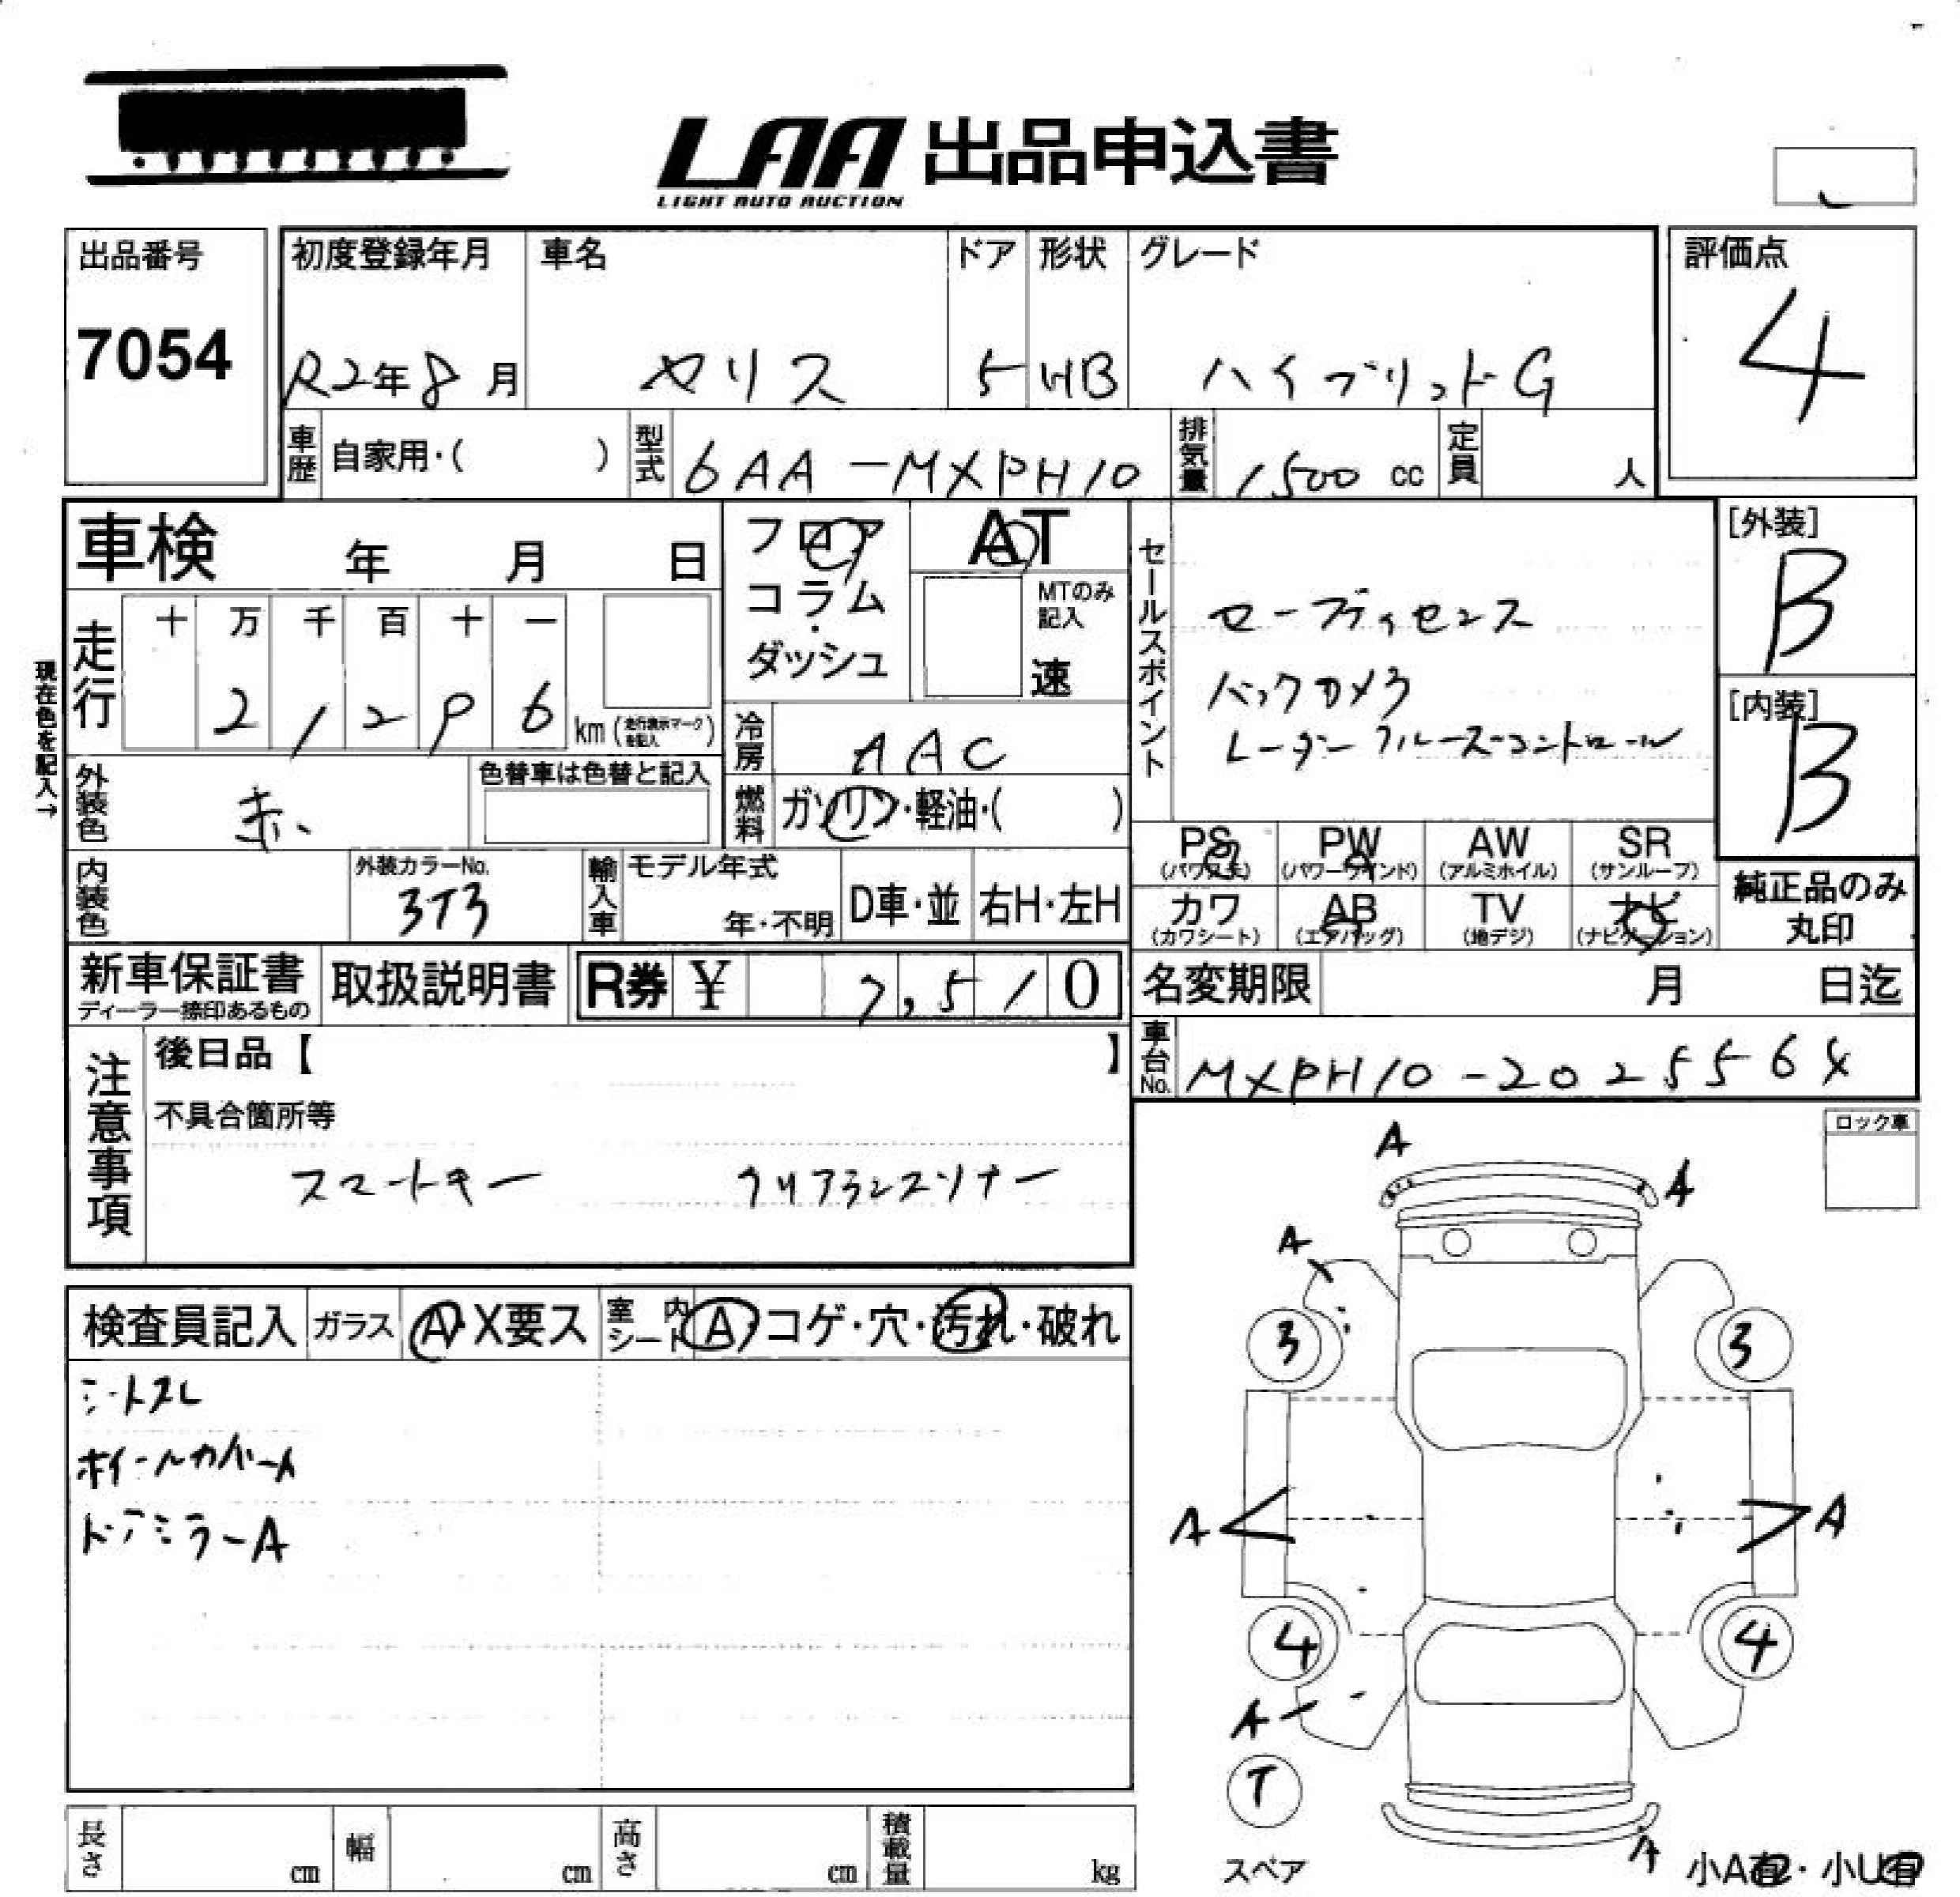 LAA 出品申込書
LIGHT AUTO AUCTION
出品番号
7054
初度登録年月
R2年8月
車名
ヤリス
ドア
5
形状
HB
グレード
ハイブリッドG
評価点
4
車歴 自家用・( )
型式 6AA-MXPH10
排気量 1500 cc
定員 人
車検 年 月 日
フロア
コラム
・
ダッシュ
AT
MTのみ
記入
速
セールスポイント
セーフティセンス
バックカメラ
レーダークルーズコントロール
[外装]
B
[内装]
B
現在色を記入→
走行
十 万 千 百 十 一
2 1 2 9 6 km (走行表示マークを記入)
冷房 AAC
外装色 赤
色替車は色替と記入
燃料 ガソリン・軽油・( )
PS (パワステ)
PW (パワーウインド)
AW (アルミホイル)
SR (サンルーフ)
内装色
外装カラーNo.
3T3
輸入車
モデル年式
年・不明
D車・並
右H・左H
カワ (カワシート)
AB (エアバッグ)
TV (地デジ)
ナビ (ナビゲーション)
純正品のみ
丸印
新車保証書
ディーラー捺印あるもの
取扱説明書
R券 ¥ 7,510
名変期限 月 日迄
車台No. MXPH10-2025564
注意事項
後日品【 】
不具合箇所等
スマートキー クリアランスソナー
ロック車
検査員記入
ガラス A・X要ス
室内シート A・コゲ・穴・汚れ・破れ
シートスレ
ホイールカバーA
ドアミラーA
A
A
A
3
3
A
A
4
4
A
T
スペア
A
小A有・小U有
長さ cm
幅 cm
高さ cm
積載量 kg